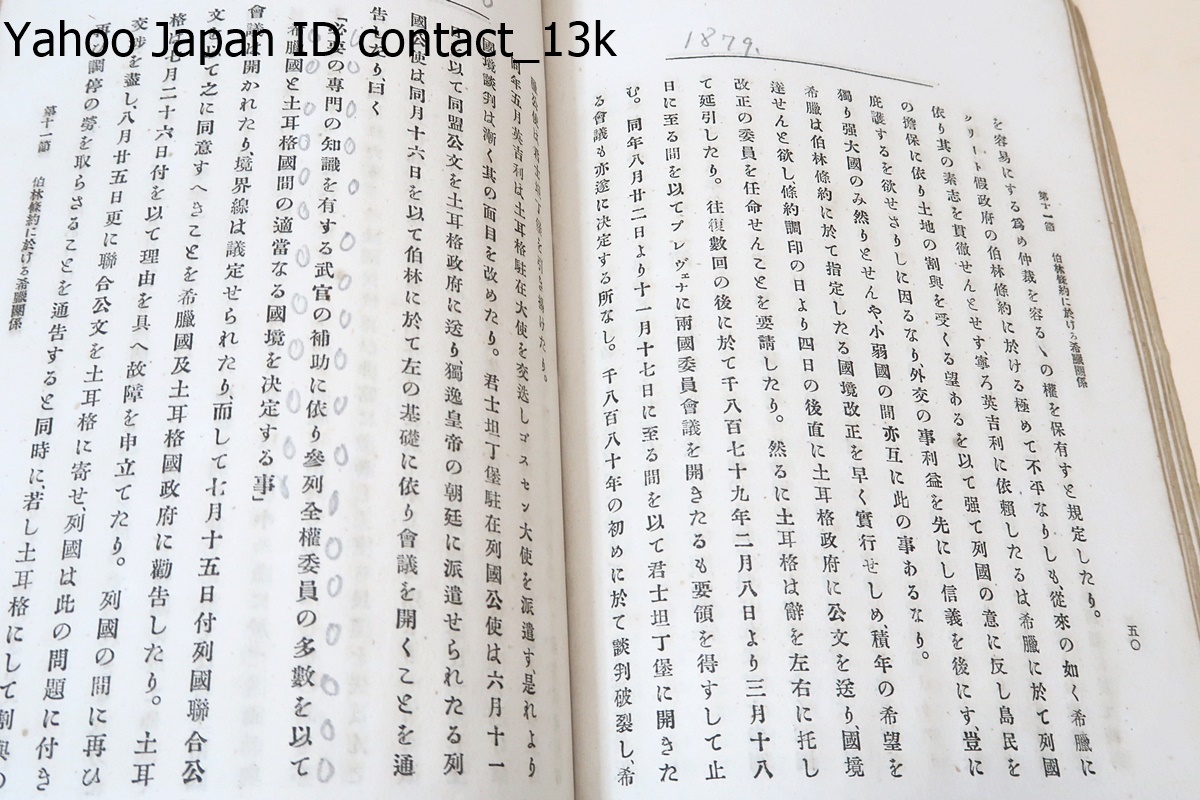 Yahoo Japan ID contact_13k
1879.
五〇
第十一節　伯林條約に於ける希臘關係
を容易にする爲め仲裁を容るゝの權を保有すと規定したり。
クリート假政府の伯林條約に於ける極めて不平なりしも從來の如く希臘に
依り其の素志を貫徹せんとせす寧ろ英吉利に依頼したるは希臘に於て列國
の擔保に依り土地の割與を受くる望あるを以て强て列國の意に反し島民を
庇護するを欲せさりしに因るなり外交の事利益を先にし信義を後にす、豈に
獨り强大國のみ然りとせんや、小弱國の間亦互に此の事あるなり。
希臘は伯林條約に於て指定したる國境改正を早く實行せしめ、積年の希望を
達せんと欲し、條約調印の日より四日の後直に土耳格政府に公文を送り、國境
改正の委員を任命せんことを要請したり。然るに土耳格は辭を左右に托し
て延引したり。往復數回の後に於て千八百七十九年二月八日より三月十八
日に至る間を以てプレヴェナに兩國委員會議を開きたるも要領を得すして止
む。同年八月廿二日より十一月十七日に至る間を以て君士坦丁堡に開きた
る會議も亦遂に決定する所なし。千八百八十年の初めに於て談判破裂し、希
同年五月英吉利は土耳格駐在大使を交迭しゴスセン大使を派遣す、是れより
國境談判は漸く其の面目を改めたり。君士坦丁堡駐在列國公使は六月十一
日を以て同盟公文を土耳格政府に送り、獨逸皇帝の朝廷に派遣せられたる列
國大使は同月十六日を以て伯林に於て左の基礎に依り會議を開くことを通
告したり、曰く
「必要の專門の知識を有する武官の補助に依り參列全權委員の多數を以て
希臘國と土耳格國間の適當なる國境を決定する事」
會議は開かれたり、境界線は議定せられたり、而して七月十五日付列國聯合公
文を以て之に同意すへきことを希臘國及土耳格國政府に勸告したり。土耳
格は七月二十六日付を以て理由を具へ故障を申立てたり。列國の間に再ひ
交渉を盡し、八月廿五日更に聯合公文を土耳格に寄せ、列國は此の問題に付き
再ひ調停の勞を取らさることを通告すると同時に、若し土耳格にして割與の
第十一節　伯林條約に於ける希臘關係